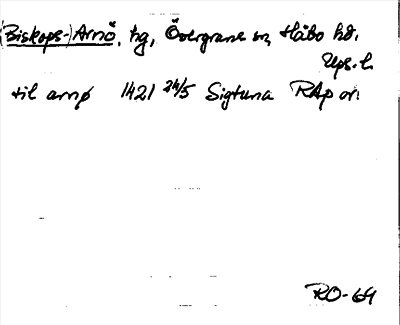 (Biskops-)Arnö, hg, Övergrans sn, Håbo hd,
Ups. l.
til arnø 1421 24/5 Sigtuna RAp or.
RO-64